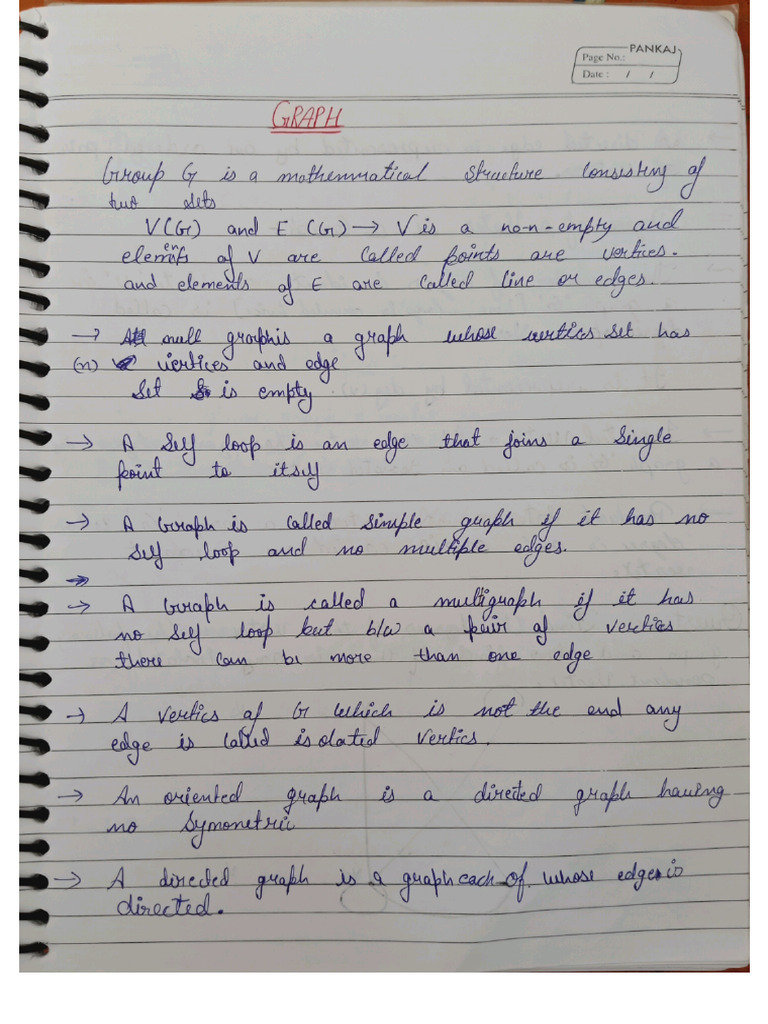 PANKAJ
Page No.:
Date : / /
GRAPH
Group G is a mathenmatical structure consisting of
two sets
V(G) and E (G) → V is a no-n-empty and
elements of V are called points are vertices.
and elements of E are called line or edges.
→ null graph is a graph whose vertics set has
(n) vertices and edge
set is empty
→ A self loop is an edge that joins a single
point to itself
→ A Graph is called simple graph if it has no
self loop and no multiple edges.
→
→ A Graph is called a multigraph if it has
no self loop but b/w a pair of vertics
there can be more than one edge
→ A vertics of G which is not the end any
edge is called isolated vertics.
→ An oriented graph is a directed graph having
no symonetric
→ A directed graph is a graph each of whose edge is
directed.